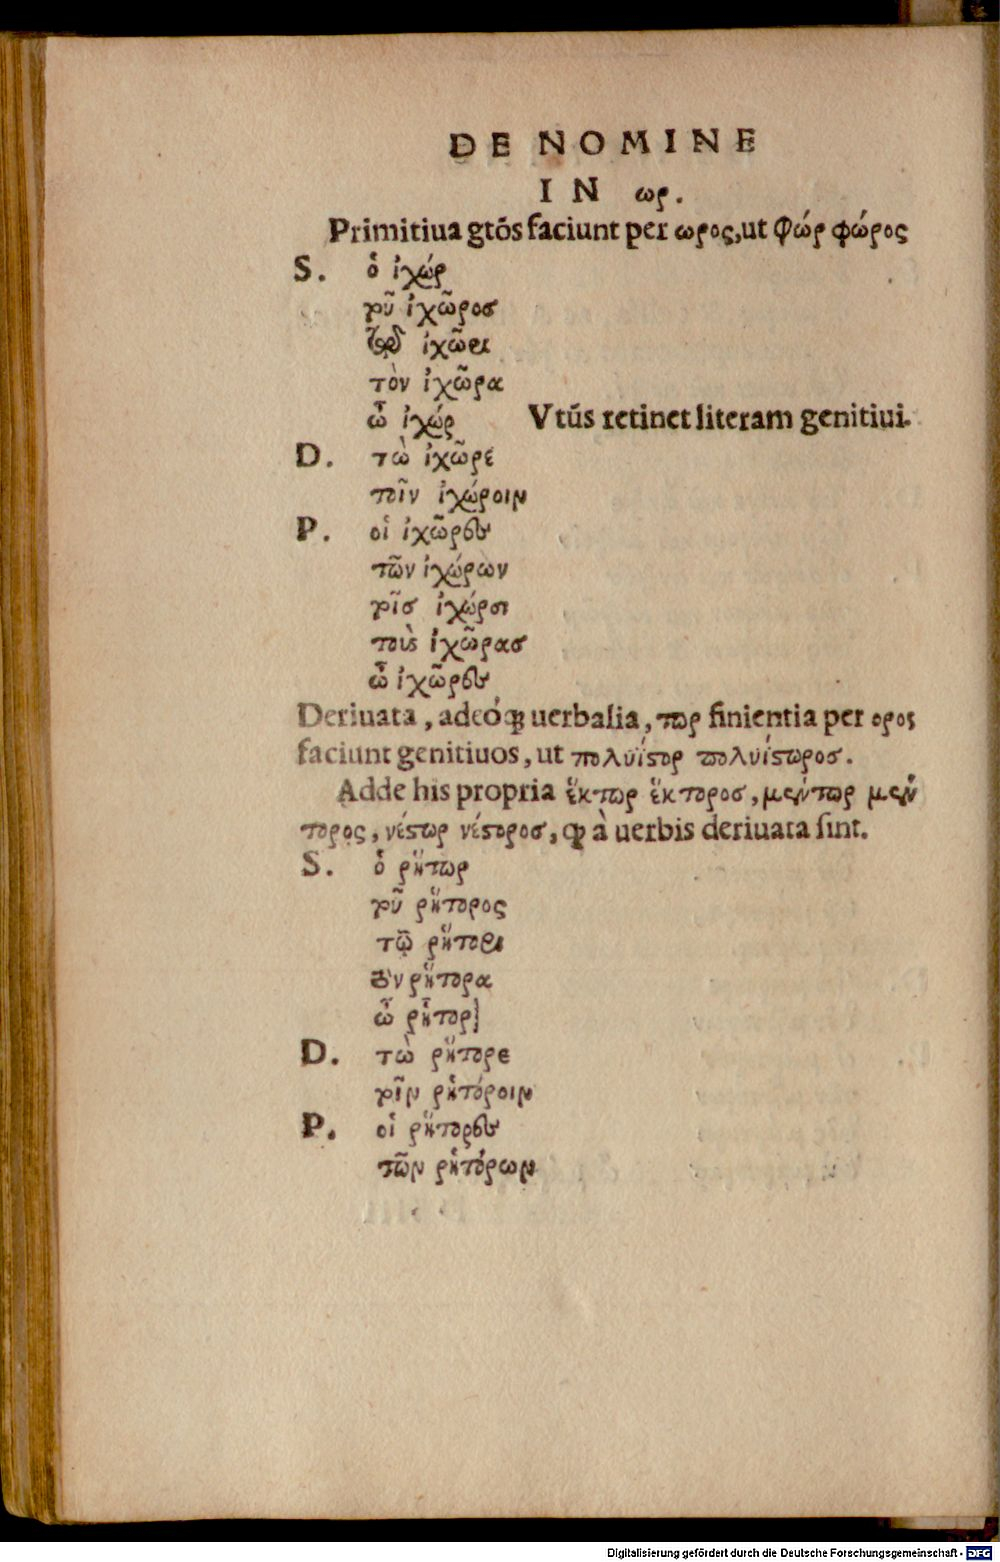 DE NOMINE
IN ωρ.
Primitiua gtõs faciunt per ωρος, ut φώρ φώρος
S. ὁ ἰχώρ
τοῦ ἰχῶροσ
τῷ ἰχῶρι
τὸν ἰχῶρα
ὦ ἰχώρ Vtũs retinet literam genitiui.
D. τὼ ἰχῶρε
τοῖν ἰχώροιν
P. οἱ ἰχῶρες
τῶν ἰχώρων
τοῖσ ἰχώρσι
τοὺς ἰχῶρασ
ὦ ἰχῶρες
Deriuata, adeóꝗ uerbalia, τωρ finientia per ορος
faciunt genitiuos, ut πολυίστορ πολυίστωροσ.
Adde his propria ἕκτωρ ἕκτοροσ, μέντωρ μέν
τορος, νέστωρ νέστοροσ, ꝙ à uerbis deriuata sint.
S. ὁ ῥήτωρ
τοῦ ῥήτορος
τῷ ῥήτορι
τὸν ῥήτορα
ὦ ῥῆτορ
D. τὼ ῥήτορε
τοῖν ῥητόροιν
P. οἱ ῥήτορες
τῶν ῥητόρων
Digitalisierung gefördert durch die Deutsche Forschungsgemeinschaft - DFG